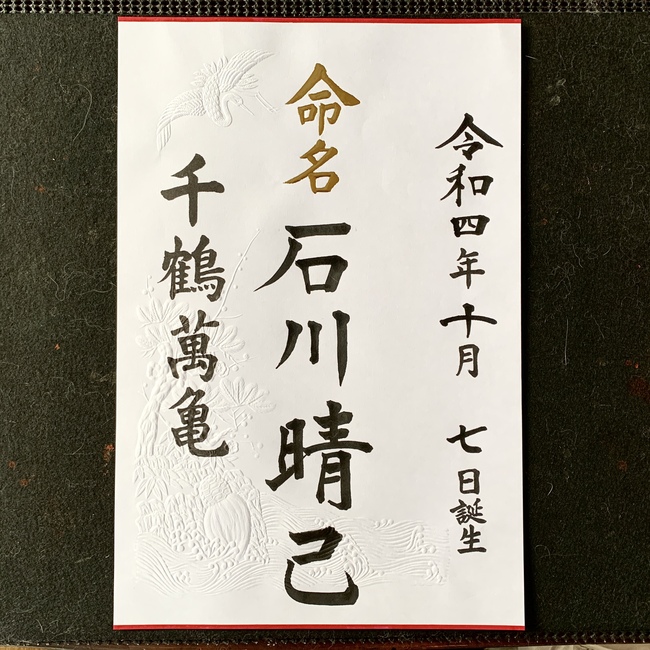 令和四年十月 七日誕生
命名
石川晴己
千鶴萬亀